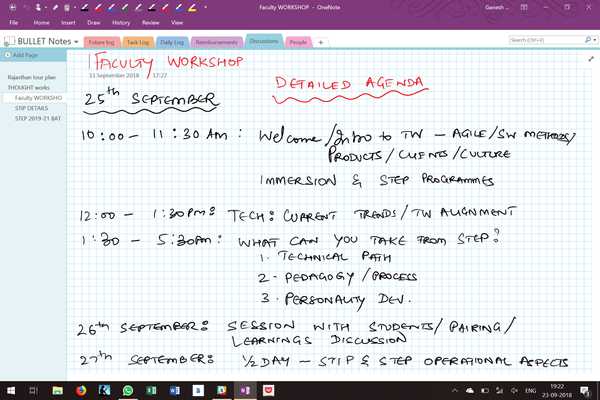 Faculty WORKSHOP - OneNote
Ganesh ..
File Home Insert Draw History Review View
BULLET Notes Future log Task Log Daily Log Reimbursements Discussions People +
Search (Ctrl+E)
Add Page
Rajasthan tour plan
THOUGHT works
Faculty WORKSHO
STIP DETAILS
STEP 2019-21 BAT
FACULTY WORKSHOP
11 September 2018 17:27
DETAILED AGENDA
25th SEPTEMBER
10:00 - 11:30 AM: Welcome/Intro to TW - AGILE/SW METHODS/
PRODUCTS/CLIENTS/CULTURE
IMMERSION & STEP PROGRAMMES
12:00 - 1:30PM: TECH: CURRENT TRENDS/TW ALIGNMENT
1:30 - 5:30PM: WHAT CAN YOU TAKE FROM STEP?
1. TECHNICAL PATH
2. PEDAGOGY/PROCESS
3. PERSONALITY DEV.
26th SEPTEMBER: SESSION WITH STUDENTS/PAIRING/
LEARNINGS DISCUSSION
27th SEPTEMBER: 1/2 DAY - STIP & STEP OPERATIONAL ASPECTS
ENG
19:22
23-09-2018